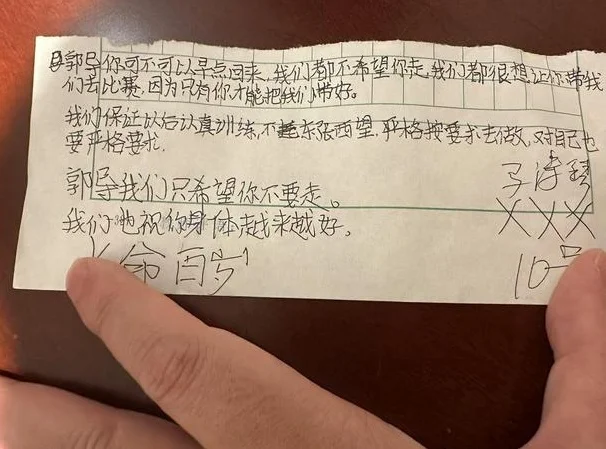 郭导你可不可以早点回来,我们都不希望你走,我们都很想让你带我
们去比赛,因为只有你才能把我们带好。
我们保证以后认真训练,不东张西望,严格按要求去做,对自己也
要严格要求。
郭导我们只希望你不要走。
我们也祝你身体越来越好。
命百岁
XXX
10号